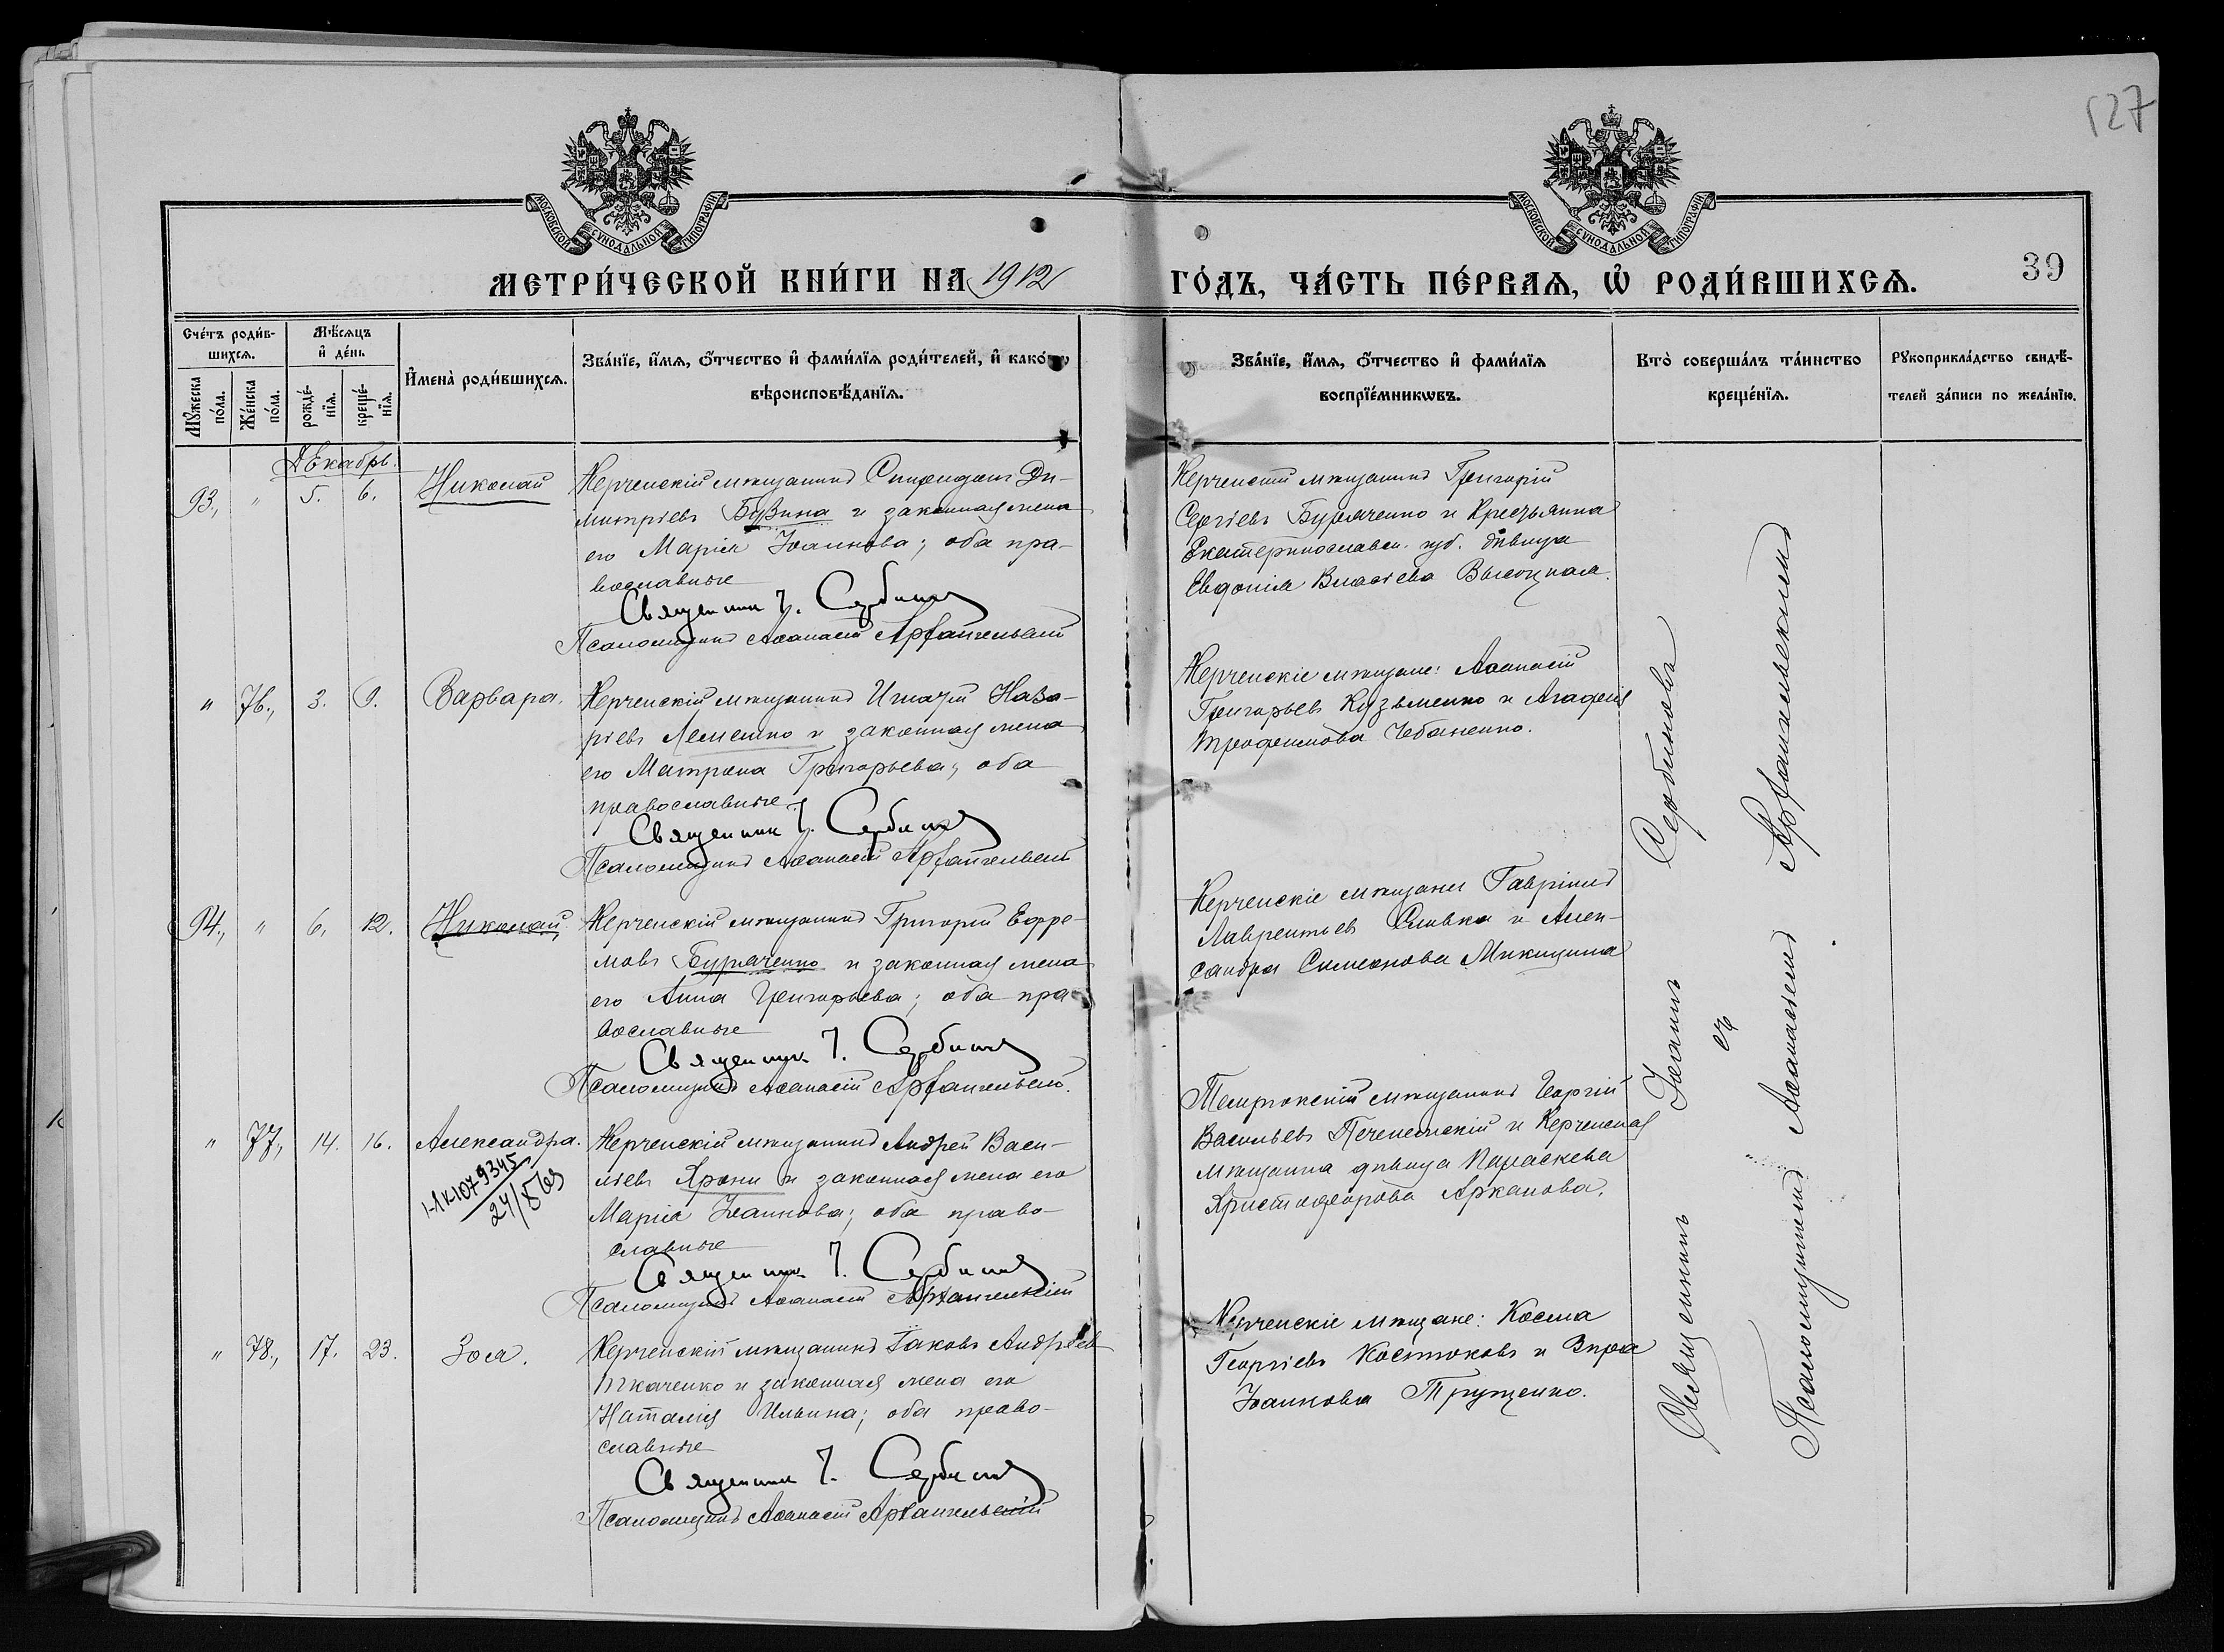 127
МОСКОВСКОЙ СУНОДАЛЬНОЙ ТИПОГРАФІИ
МОСКОВСКОЙ СУНОДАЛЬНОЙ ТИПОГРАФІИ
МЕТРИ́ЧЕСКОЙ КНИ́ГИ НА 1912 ГО́ДЪ, ЧА́СТЬ ПЕ́РВАѦ, Ѡ҆ РОДИ́ВШИХСѦ.
39
Сче́тъ роди́в-
шихсѧ.
Мꙋ́жеска
по́ла.
Же́нска
по́ла.
Мѣ́сѧцъ
и҆ де́нь
рожде́-
нїѧ.
креще́-
нїѧ.
И҆мена̀ роди́вшихсѧ.
Зва́нїе, и҆́мѧ, ѻ҆́тчество и҆ фами́лїѧ роди́телей, и҆ како́гѡ
вѣроисповѣ́данїѧ.
Зва́нїе, и҆́мѧ, ѻ҆́тчество и҆ фами́лїѧ
воспрїе́мникѡвъ.
Кто̀ соверша́лъ та́инство
креще́нїѧ.
Рꙋкоприкла́дство свидѣ́-
телей за́писи по жела́нїю.
Декабрь.
93., " 5. 6. Николай
Керченскій мѣщанинъ Спиридонъ Ди-
митріевъ Бузина и законная жена
его Марія Іоаннова; оба пра-
вославные
Священникъ І. Сербиновъ
Псаломщикъ Аѳанасій Архангельскій
Керченскій мѣщанинъ Григорій
Сергіевъ Буряченко и Крестьянка
Екатеринославск. губ. дѣвица
Евдокія Власіева Высоцкая.
" 76., 3. 9. Варвара.
Керченскій мѣщанинъ Игнатій Наза-
ріевъ Лемешко и законная жена
его Матрона Григорьева; оба
православные
Священникъ І. Сербиновъ
Псаломщикъ Аѳанасій Архангельскій
Керченскіе мѣщане: Аѳанасій
Григорьевъ Кузьменко и Агафія
Трофимова Чебаненко.
94., " 6. 12. Николай
Керченскій мѣщанинъ Григорій Ефре-
мовъ Буряченко и законная жена
его Анна Григорьева; оба пра-
вославные
Священникъ І. Сербиновъ
Псаломщикъ Аѳанасій Архангельскій.
Керченскіе мѣщане Гавріилъ
Лаврентьевъ Сливка и Алек-
сандра Симеонова Микицина
" 77., 14. 16. Александра.
I-АК-1079345
24/X 69
Керченскій мѣщанинъ Андрей Васи-
ліевъ Ярони и законная жена его
Марія Іоаннова; оба право-
славные
Священникъ І. Сербиновъ
Псаломщикъ Аѳанасій Архангельскій
Темрюкскій мѣщанинъ Георгій
Васильевъ и Керченская
мѣщанка дѣвица Параскева
Христофорова Арканова.
" 78., 17. 23. Зоя.
Керченскій мѣщанинъ Іаковъ Андреевъ
Ткаченко и законная жена его
Наталія Ильина; оба право-
славные
Священникъ І. Сербиновъ
Псаломщикъ Аѳанасій Архангельскій
Керченскіе мѣщане: Косма
Георгіевъ Костюковъ и
Іоаннова Трущенко.
Священникъ Іоаннъ Сербиновъ
съ
Псаломщикомъ Аѳанасіемъ Архангельскимъ.